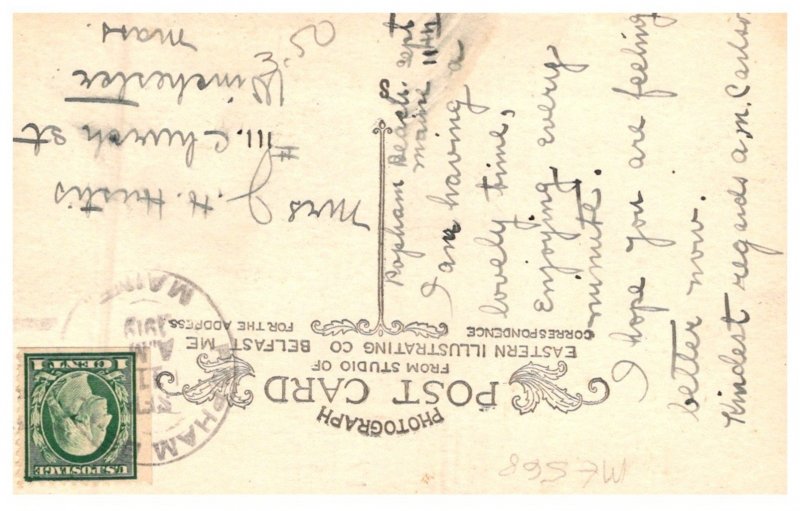 PHOTOGRAPH
POST CARD
FROM STUDIO OF
EASTERN ILLUSTRATING CO BELFAST ME
CORRESPONDENCE
FOR THE ADDRESS
Popham Beach. Sept
Maine 11th
I am having a
lovely time,
Enjoying every
minute.
I hope you are feeling
better now.
Kindest regards a.m.
Mrs J. H.
# 111. Church St
Winchester
Mass.
MAINE
A.M.
1919
U.S. POSTAGE
1 CENT 1
ME568